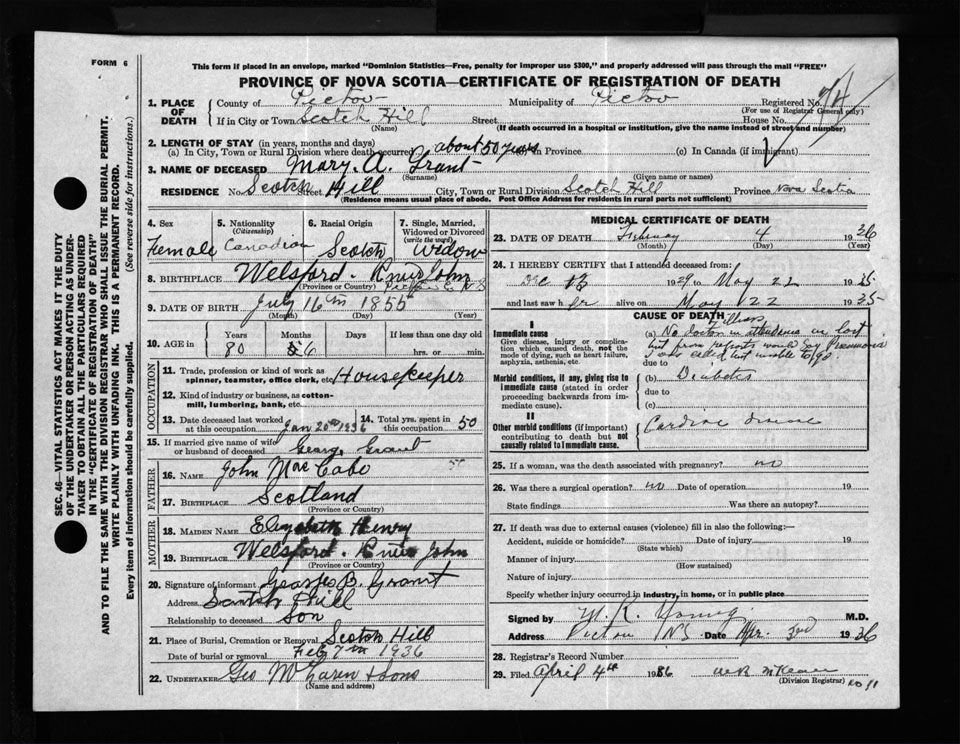 FORM 6
This form if placed in an envelope, marked "Dominion Statistics—Free, penalty for improper use $300," and properly addressed will pass through the mail "FREE"
PROVINCE OF NOVA SCOTIA—CERTIFICATE OF REGISTRATION OF DEATH
SEC. 46—VITAL STATISTICS ACT MAKES IT THE DUTY
OF THE UNDERTAKER OR PERSON ACTING AS UNDER-
TAKER TO OBTAIN ALL THE PARTICULARS REQUIRED
IN THE "CERTIFICATE OF REGISTRATION OF DEATH"
AND TO FILE THE SAME WITH THE DIVISION REGISTRAR WHO SHALL ISSUE THE BURIAL PERMIT.
WRITE PLAINLY WITH UNFADING INK. THIS IS A PERMANENT RECORD.
Every item of information should be carefully supplied. (See reverse side for instructions.)
1. PLACE OF DEATH County of Pictou Municipality of Pictou Registered No. 74
(For use of Registrar General only)
If in City or Town Scotch Hill Street House No.
(Name) (If death occurred in a hospital or institution, give the name instead of street and number)
2. LENGTH OF STAY (in years, months and days)
(a) In City, Town or Rural Division where death occurred about 50 years in Province (c) In Canada (if immigrant)
3. NAME OF DECEASED Mary. A. Grant
(Surname) (Given name or names)
RESIDENCE No. Scotch Street Hill City, Town or Rural Division Scotch Hill Province Nova Scotia
(Residence means usual place of abode. Post Office Address for residents in rural parts not sufficient)
4. Sex Female
5. Nationality (Citizenship) Canadian
6. Racial Origin Scotch
7. Single, Married, Widowed or Divorced (write the word) Widow
8. BIRTHPLACE Welsford. River John
(Province or Country) Pictou Co NS
9. DATE OF BIRTH July 16th 1855
(Month) (Day) (Year)
10. AGE in Years 80 Months 6 Days If less than one day
hrs. or min.
OCCUPATION
11. Trade, profession or kind of work as
spinner, teamster, office clerk, etc. Housekeeper
12. Kind of industry or business, as cotton-
mill, lumbering, bank, etc.
13. Date deceased last worked at this occupation Jan 20th 1936
14. Total yrs. spent in this occupation 50
15. If married give name of wife
or husband of deceased George Grant
FATHER
16. NAME John MacCabe
17. BIRTHPLACE Scotland
(Province or Country)
MOTHER
18. MAIDEN NAME Elizabeth Henry
19. BIRTHPLACE Welsford. River John
(Province or Country)
20. Signature of informant George B. Grant
Address Scotch Hill
Relationship to deceased Son
21. Place of Burial, Cremation or Removal Scotch Hill
Date of burial or removal Feb 7th 1936
22. UNDERTAKER Geo McLaren & Sons
(Name and address)
MEDICAL CERTIFICATE OF DEATH
23. DATE OF DEATH February 4 1936
(Month) (Day) (Year)
24. I HEREBY CERTIFY that I attended deceased from:
Dec 13 1929 to May 22 1935
and last saw her alive on May 22 1935
CAUSE OF DEATH
I
Immediate cause
Give disease, injury or complica-
tion which caused death, not the
mode of dying, such as heart failure,
asphyxia, asthenia, etc.
(a) No doctor in attendance in last
but from reports would say Pneumonia
I was called but unable to go.
due to
Morbid conditions, if any, giving rise to
immediate cause (stated in order
proceeding backwards from im-
mediate cause).
(b) Diabetes
due to
(c)
II
Other morbid conditions (if important)
contributing to death but not
causally related to immediate cause.
Cardiac disease
25. If a woman, was the death associated with pregnancy? no
26. Was there a surgical operation? no Date of operation 19
State findings Was there an autopsy?
27. If death was due to external causes (violence) fill in also the following:—
Accident, suicide or homicide? Date of injury 19
(State which)
Manner of injury
(How sustained)
Nature of injury
Specify whether injury occurred in industry, in home, or in public place
Signed by M. R. Young M.D.
Address Pictou NS Date Apr. 3rd 1936
28. Registrar's Record Number
29. Filed April 4th 1936
(Division Registrar) No 11